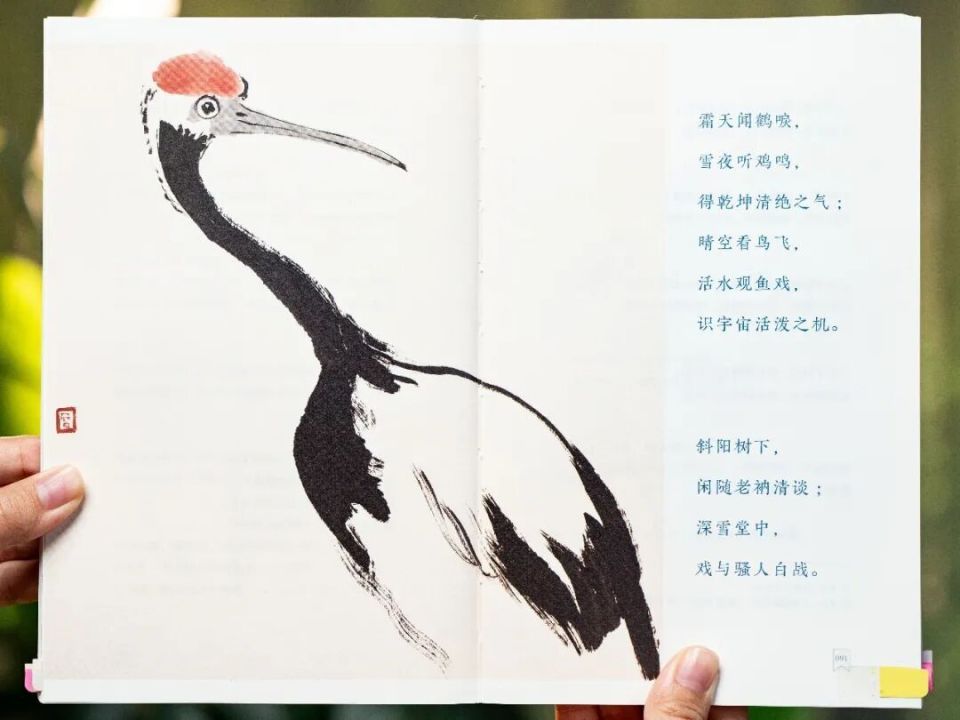 霜天闻鹤唳，
雪夜听鸡鸣，
得乾坤清绝之气；
晴空看鸟飞，
活水观鱼戏，
识宇宙活泼之机。
斜阳树下，
闲随老衲清谈；
深雪堂中，
戏与骚人白战。
091